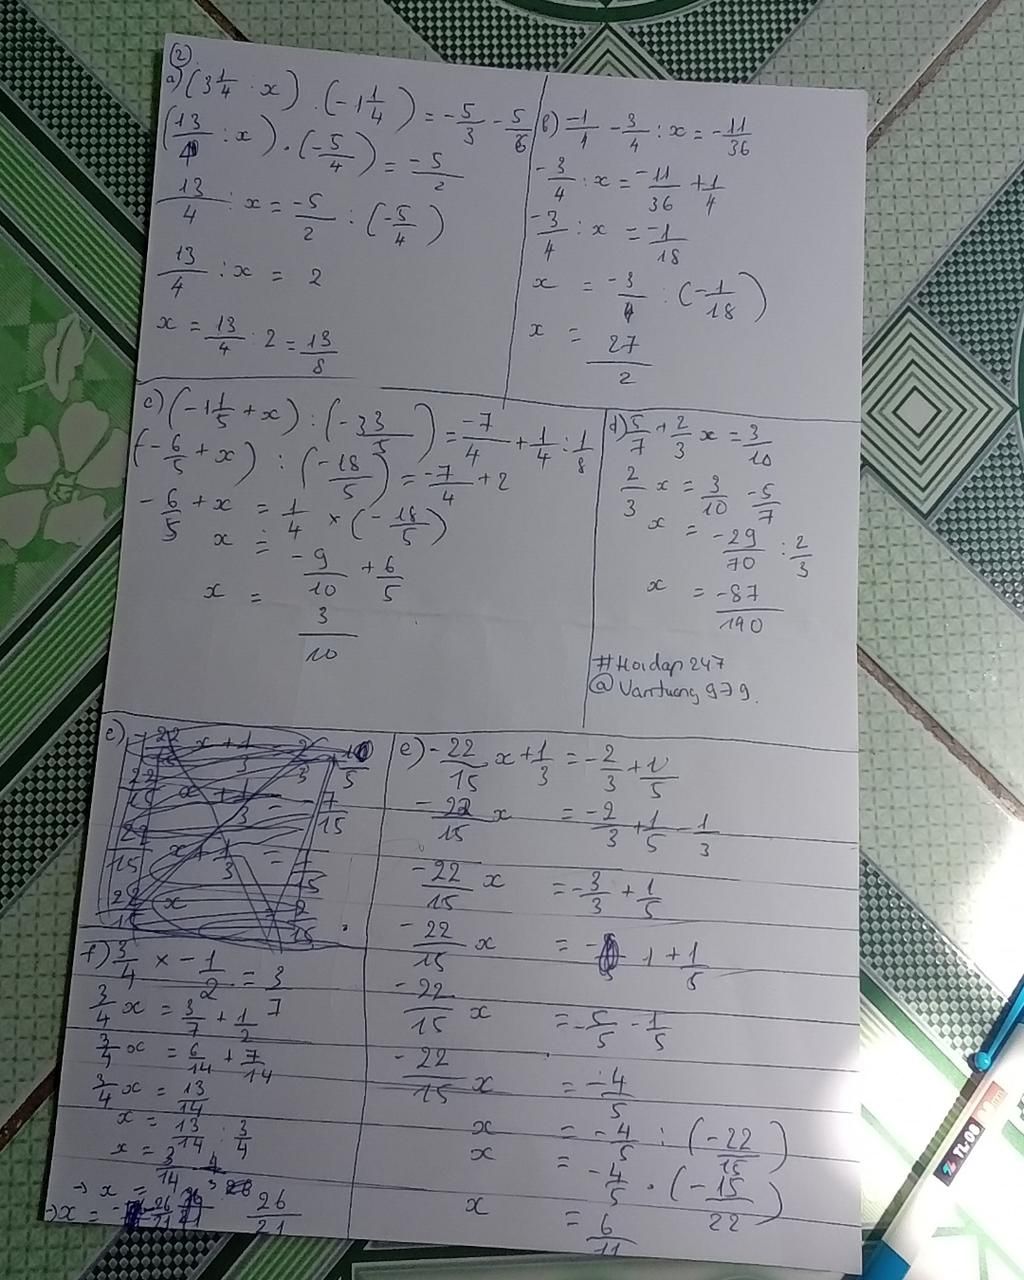 2
a) (3 1/4 : x) . (-1 1/4) = -5/3 - 5/6
(13/4 : x) . (-5/4) = -5/2
13/4 : x = -5/2 : (-5/4)
13/4 : x = 2
x = 13/4 : 2 = 13/8
b) -1/4 - 3/4 : x = -11/36
-3/4 : x = -11/36 + 1/4
-3/4 : x = -1/18
x = -3/4 : (-1/18)
x = 27/2
c) (-1 1/5 + x) : (-3 3/5) = -7/4 + 1/4 : 1/8
(-6/5 + x) : (-18/5) = -7/4 + 2
-6/5 + x = 1/4 × (-18/5)
x = -9/10 + 6/5
x = 3/10
d) 5/7 + 2/3 x = 3/10
2/3 x = 3/10 - 5/7
x = -29/70 : 2/3
x = -87/140
#Hoidap247
@Vantuong979.
e) -22/15 x + 1/3 = -2/3 + 1/5
-22/15 x = -2/3 + 1/5 - 1/3
-22/15 x = -3/3 + 1/5
-22/15 x = -1 + 1/5
-22/15 x = -5/5 - 1/5
-22/15 x = -4/5
x = -4/5 : (-22/15)
x = -4/5 . (-15/22)
x = 6/11
f) 3/4 x - 1/2 = 3/7
3/4 x = 3/7 + 1/2
3/4 x = 6/14 + 7/14
3/4 x = 13/14
x = 13/14 : 3/4
x = 13/14 . 4/3
→ x =
→ x = 26/21